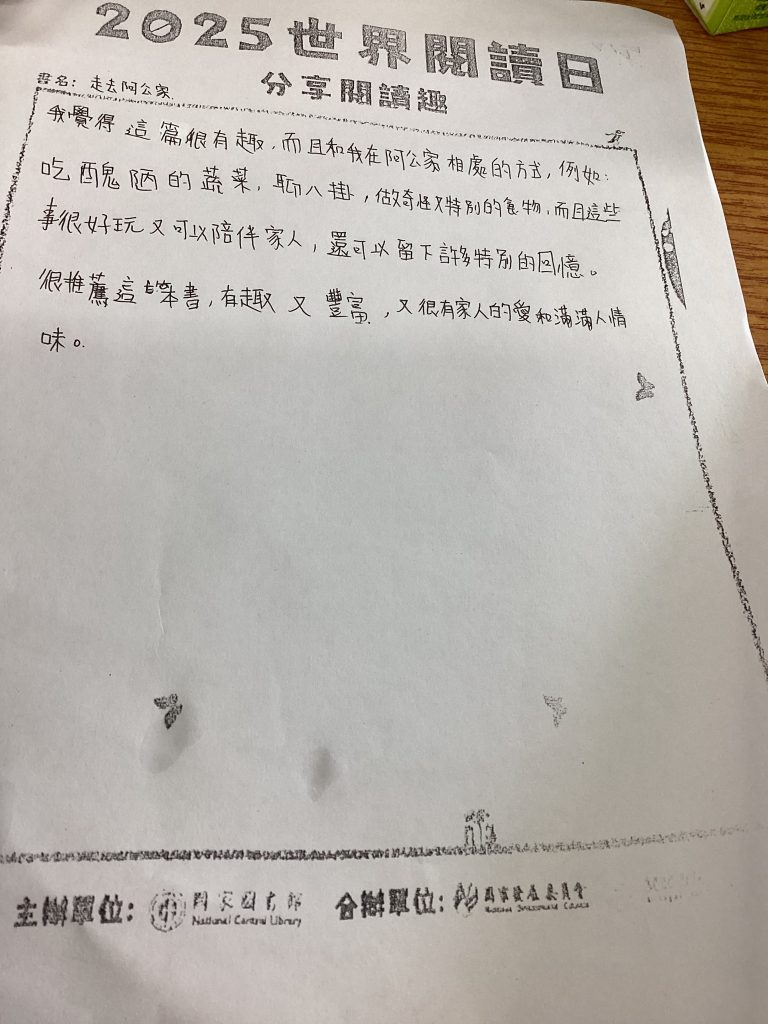 2025世界閱讀日
分享閱讀趣
書名：走去阿公家
我覺得這篇很有趣，而且和我在阿公家相處的方式，例如：
吃醜陋的蔬菜，聊八掛，做奇怪又特別的食物，而且這些
事很好玩又可以陪伴家人，還可以留下許多特別的回憶。
很推薦這本書，有趣又豐富，又很有家人的愛和滿滿人情
味。
主辦單位：國家圖書館 合辦單位：國家發展委員會
National Central Library National Development Council